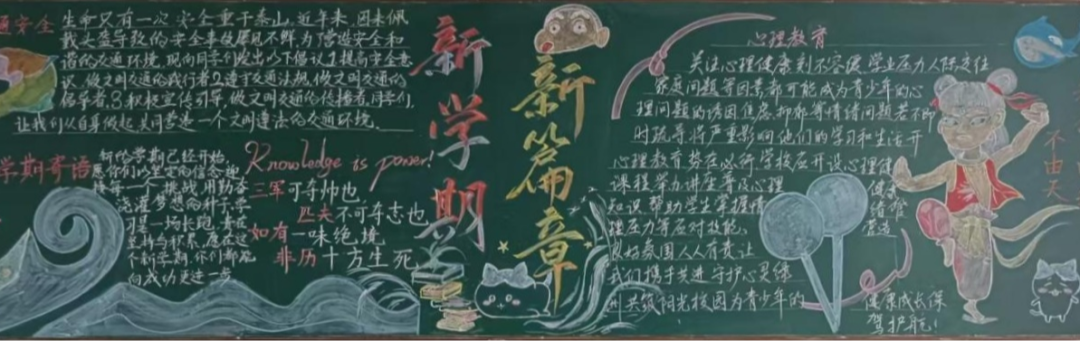 通安全
生命只有一次 安全重于泰山。近年来,因未佩
戴头盔导致的安全事故屡见不鲜为了营造安全和
谐的交通环境,现向同学们发出以下倡议1提高安全意
识,做文明交通的践行者2遵守交通法规,做文明交通的
倡导者,3积极宣传引导,做文明交通的传播者,同学们,
让我们从自身做起,共同营造一个文明遵法的交通环境。
学期寄语
新的学期已经开始,
愿你们以坚定的信念迎
接每一个挑战,用勤奋
浇灌梦想的种子,学
习是一场长跑,贵在
坚持与积累,愿在这
个新学期,你们都能
向成功更进一步
Knowledge is power!
三军可夺帅也
匹夫不可夺志也
如有一味绝境
非历十方生死
新学期
新篇章
心理教育
关注心理健康刻不容缓,学业压力人际交往
家庭问题等因素都可能成为青少年的心
理问题的诱因焦虑,抑郁等情绪问题若不即
时疏导将严重影响他们的学习和生活开
心理教育势在必行,学校应开设心理健
课程举办讲座普及心理
知识帮助学生掌握情
理压力等应对技能,
良好氛围人人有责让
我们携手共进守护心灵绿
州共筑阳光校园为青少年的
健康成长保
驾护航!
不由天